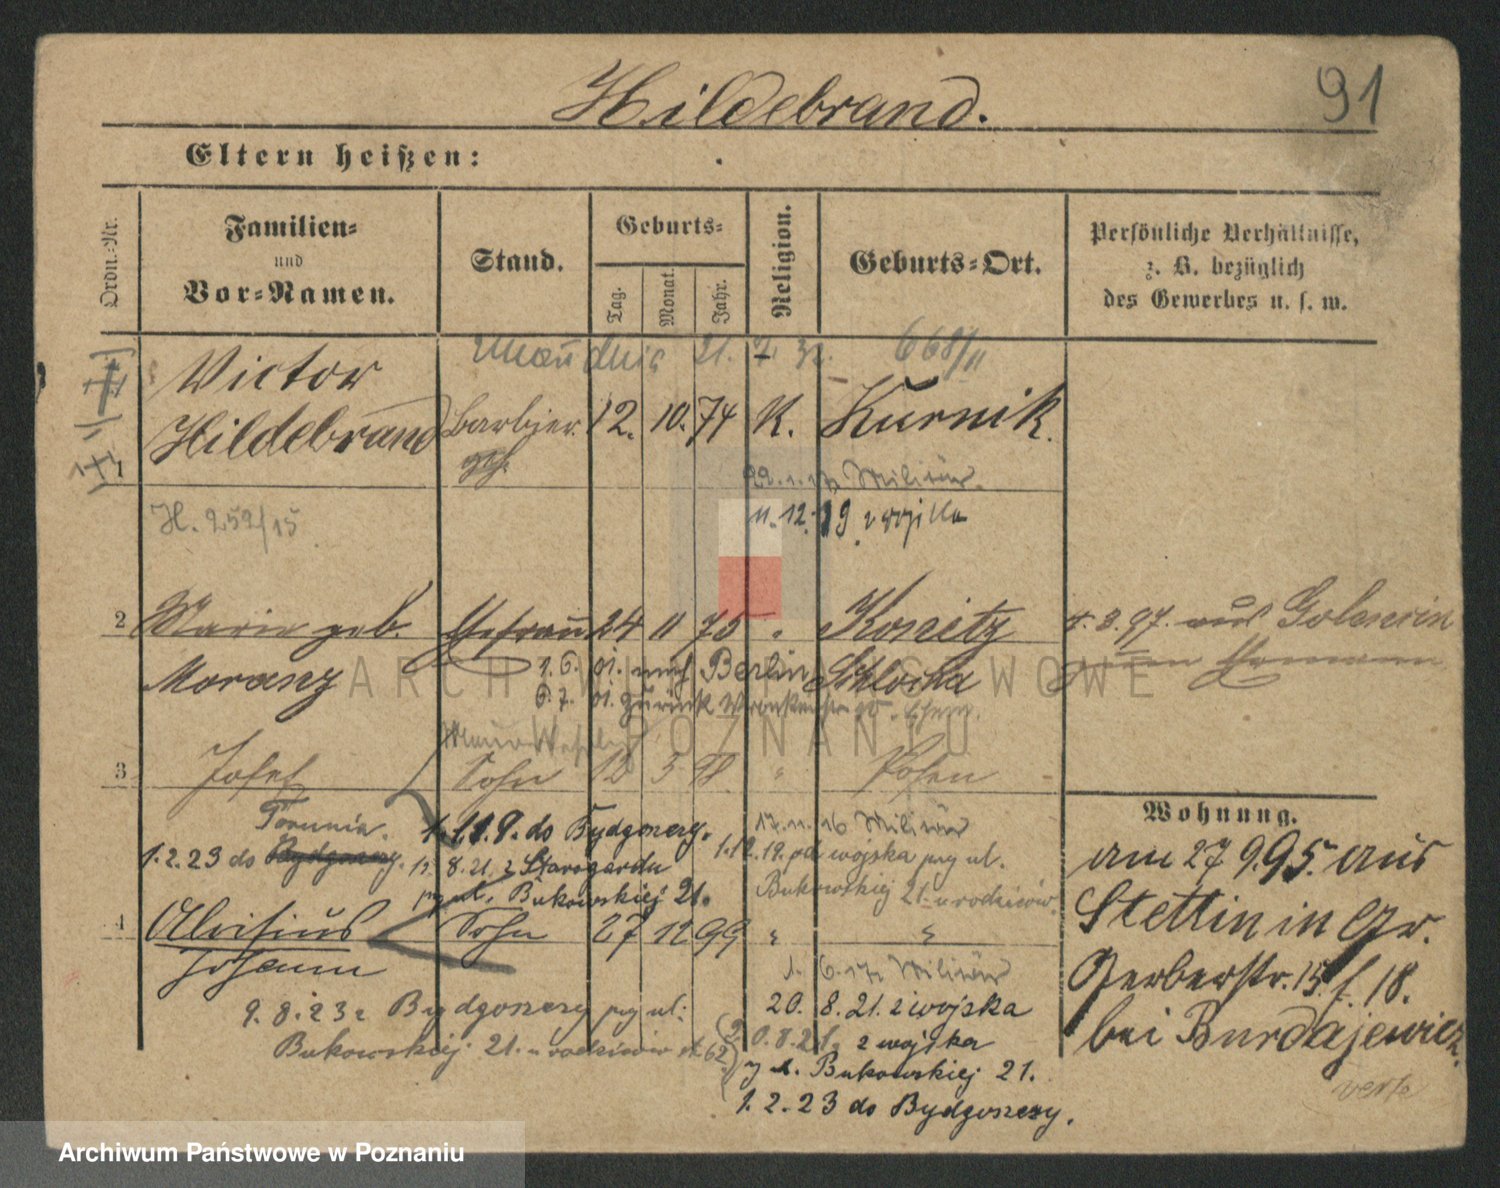 91
Hildebrand.
Eltern heißen:
Ordn.-Nr.
Familien-
und
Vor-Namen.
Stand.
Geburts-
Tag.
Monat.
Jahr.
Religion.
Geburts-Ort.
Persönliche Verhältnisse,
z. B. bezüglich
des Gewerbes u. s. w.
21. 7. 668/II
Victor
1 Hildebrand Barbier 12. 10. 74 K. Kurnik.
Militär.
H. 252/15 11. 12. 19 z wojska
2 Marie geb. Ehefrau 24 11 75 " Konitz 4. 3. 97. aus Gol
Moranz 1. 6. 01. nach Berlin Schlochau
6. 7. 01. zurück
3 Josef Sohn 12 3 98 " Posen
Wohnung.
Torunia. 1. 11. 9. do Bydgoszczy. 17. 11. 16 Militär
1.2.23 do Bydgoszczy. 8. 21. z Starogardu 1.12.19. od wojska przy ul.
przy ul. Bukowskiej 21. Bukowskiej 21. u rodziców
4 Aloisius Sohn 27 12 99 " "
Johann
1. 6. 17 Militär
9. 8. 23 z Bydgoszczy przy ul. 20. 8. 21. z wojska
Bukowskiej 21. u rodziców 20.8.21. z wojska
Bukowskiej 21.
1. 2. 23 do Bydgoszczy.
am 27 9. 95. aus
Stettin in Gr.
Gerberstr. 15. f. 18.
bei Burdajewicz.
verte
ARCHIWUM PAŃSTWOWE
W POZNANIU
Archiwum Państwowe w Poznaniu